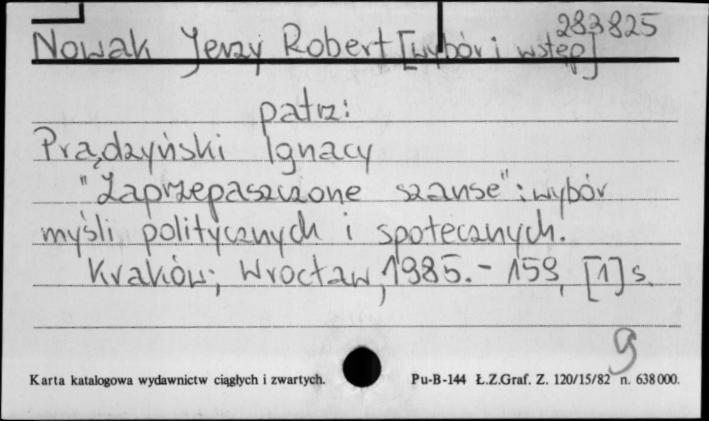 283825
Nowak Jerzy Robert [wybór i wstęp]
patrz:
Prądzyński Ignacy
"Zaprzepaszczone szanse": wybór
myśli politycznych i społecznych.
Kraków; Wrocław, 1985. - 159, [1] s.
g
Karta katalogowa wydawnictw ciągłych i zwartych. Pu-B-144 Ł.Z.Graf. Z. 120/15/82 n. 638000.